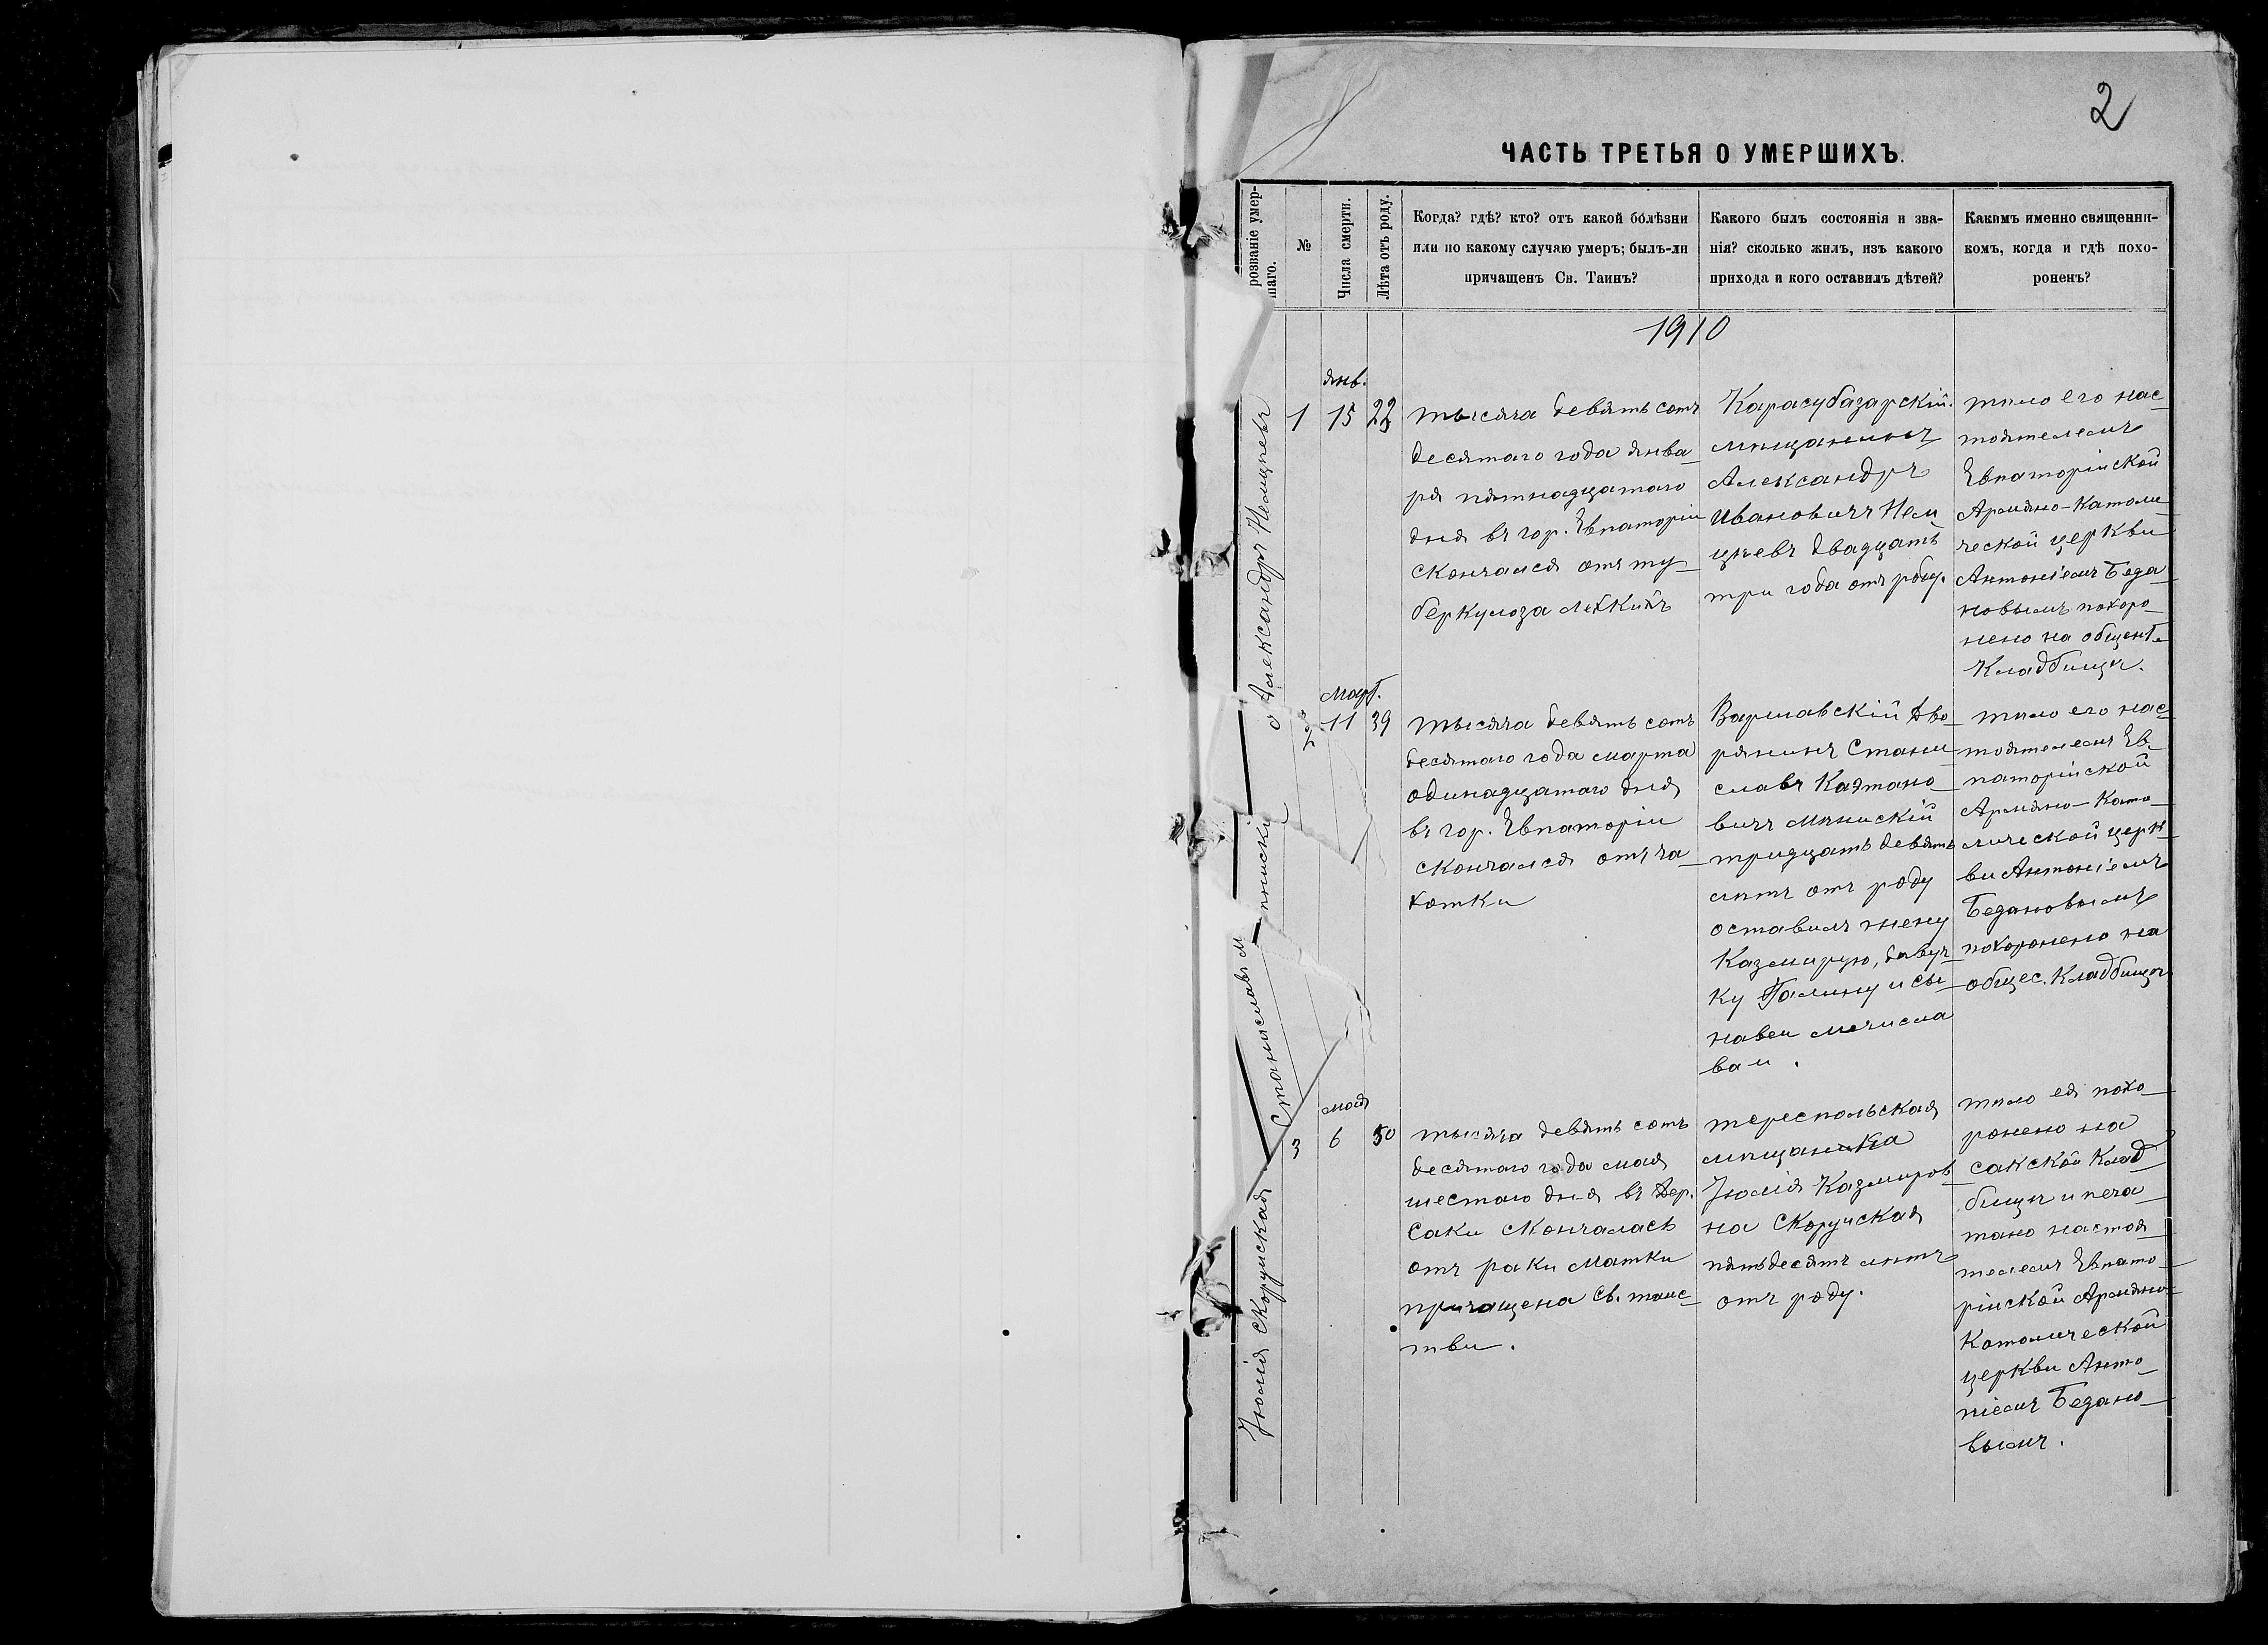 2
ЧАСТЬ ТРЕТЬЯ О УМЕРШИХЪ.
розваніе умер-
шаго.
№
Числа смерти.
Лѣта отъ роду.
Когда? гдѣ? кто? отъ какой болѣзни
или по какому случаю умеръ; былъ-ли
причащенъ Св. Таинъ?
Какого былъ состоянія и зва-
нія? сколько жилъ, изъ какого
прихода и кого оставилъ дѣтей?
Какимъ именно священни-
комъ, когда и гдѣ похо-
роненъ?
1910
Александръ Немцѣевъ
1
янв.
15
23
тысяча девять сотъ
десятаго года янва-
ря пятнадцатаго
дня въ гор. Евпаторіи
скончался отъ ту-
беркулоза легкихъ
Карасубазарскій
мѣщанинъ
Александръ
Ивановичъ Нем-
цѣевъ двадцать
три года отъ роду.
тѣло его нас-
тоятелемъ
Евпаторійской
Армяно-Католи-
ческой церкви
Антоніемъ Беда-
новымъ похоро-
нено на общест.
Кладбищѣ.
Станиславъ М
нискій
2
март.
11
39
тысяча девять сотъ
десятаго года марта
одинадцатаго дня
въ гор. Евпаторіи
скончался отъ ча-
хотки
Варшавскій дво-
рянинъ Стани-
славъ Каэтано-
вичъ
тридцать девять
лѣтъ отъ роду
оставилъ жену
Казмирую, дѣвуч-
ку Галину и сы-
новей мечисла
ва и .
тѣло его нас-
тоятелемъ Ев-
паторійской
Армяно-Като-
лической церк-
ви Антоніемъ
Бедановымъ
похоронено на
общес. Кладбищѣ
Юлія Скорупская
3
мая
6
50
тысяча девять сотъ
десятаго года мая
шестаго дня въ дер.
Саки скончалась
отъ раки матки
причащена Св. таис-
тви.
тереспольская
мѣщанка
Юлія Казмиров-
на Скорупская
пятьдесятъ лѣтъ
отъ роду.
тѣло ея похо-
ронено на
сакской клад-
бищѣ и печа-
тано настоя-
телемъ Евпато-
рійской Армяно-
Католической
церкви Анто-
ніемъ Бедано-
вымъ.